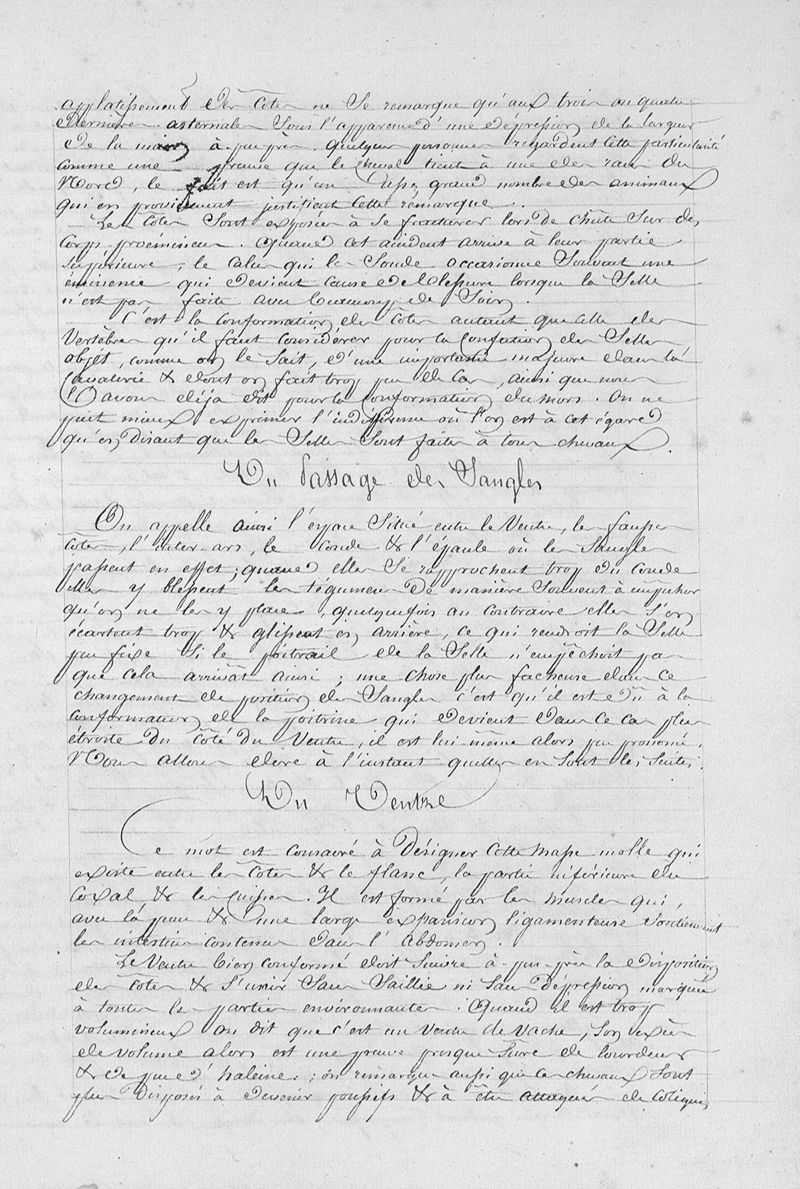 applatissement des côtes ne se remarque qu'aux trois ou quatre
dernières asternales sous l'apparence d'une dépression de la largeur
de la main à-peu-près. Quelques personnes regardent cette particularité
comme une preuve que le cheval tient à une des races du
Nord, le fait est qu'un assez grand nombre des animaux
qui en proviennent justifient cette remarque.
Les côtes sont exposées à se fracturer lors de chûte sur des
corps proéminens. Quand cet accident arrive à leur partie
supérieure, le calus qui les soude occasionne souvent une
éminence qui devient cause de blessure lorsque la selle
n'est pas faite avec beaucoup de soin.
C'est la conformation des côtes autant que celle des
vertèbres qu'il faut considérer pour la confection des selles
objet, comme on le sait, d'une importance majeure dans la
cavalerie & dont on fait trop peu de cas, ainsi que nous
l'avons déjà dit pour la conformation du mors. On ne
peut mieux exprimer l'indifférence où l'on est à cet égard
qu'en disant que les selles sont faites à tous chevaux.
Du Passage des Sangles
On appelle ainsi l'espace situé entre le ventre, les fausses
côtes, l'inter-ars, le coude & l'épaule où les sangles
passent en effet; quand elles se rapprochent trop du coude
elles y blessent les tégumens de manière souvent à empêcher
qu'on ne les y place, quelquefois au contraire elles s'en
écartent trop & glissent en arrière, ce qui rendroit la selle
peu fixe si le poitrail de la selle n'empêchoit pas
que cela arrivât ainsi; une chose plus facheuse dans ce
changement de position des sangles c'est qu'il est dû à la
conformation de la poitrine qui devient dans ce cas plus
étroite du côté du ventre, il est lui même alors peu prononcé.
Nous allons dire à l'instant quelles en sont les suites.
Du Ventre
Ce mot est consacré à désigner cette masse molle qui
existe entre les côtes & le flanc, la partie inférieure du
coxal, & les cuisses. Il est formé par les muscles qui,
avec la peau & une large expansion ligamenteuse soutiennent
les intestins contenus dans l'abdomen.
Le ventre bien conformé doit suivre à-peu-près la disposition
des côtes & s'unir sans saillie ni sans dépression marquée
à toutes les parties environnantes. Quand il est trop
volumineux on dit que c'est un ventre de vache, son excès
de volume alors est une preuve presque sûre de lourdeur
& de peu d'haleine; on remarque aussi que ces chevaux sont
plus disposés à devenir poussifs & à être attaqués de coliques,